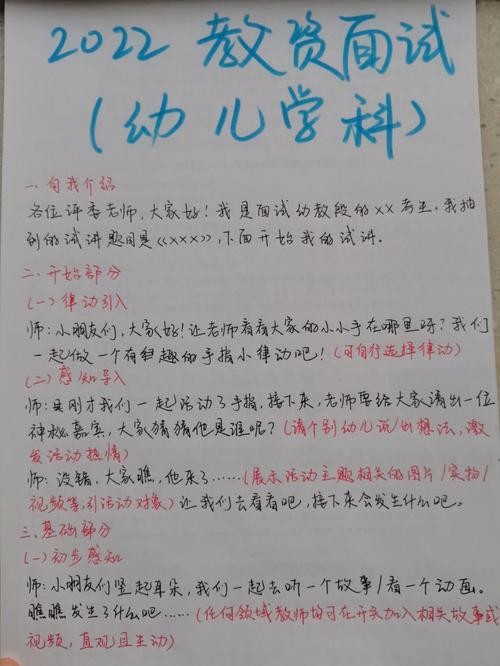 2022 教资面试
(幼儿学科)
一.自我介绍
各位评委老师,大家好!我是面试幼教段的××考生.我抽
到的试讲题目是《×××》,下面开始我的试讲。
二.开始部分
(一)律动引入
师:小朋友们,大家好!让老师看看大家的小小手在哪里呀?我们
一起做一个有趣的手指小律动吧!(可自行选择律动)
(二)感知导入
师:刚才我们一起活动了手指,接下来,老师要给大家请出一位
神秘嘉宾,大家猜猜他是谁呢?(请个别幼儿说出想法,激
发活动热情)
师:没错,大家瞧,他来了……(展示活动主题相关的图片/实物/
视频等,引活动对象)让我们去看看吧,接下来会发生什么吧。
三.基础部分
(一)初步感知
师:小朋友们竖起耳朵,我们一起去听一个故事/看一个动画。
瞧瞧发生了什么吧……(任何领域教师均可在开头加入相关故事或
视频,直观且生动)